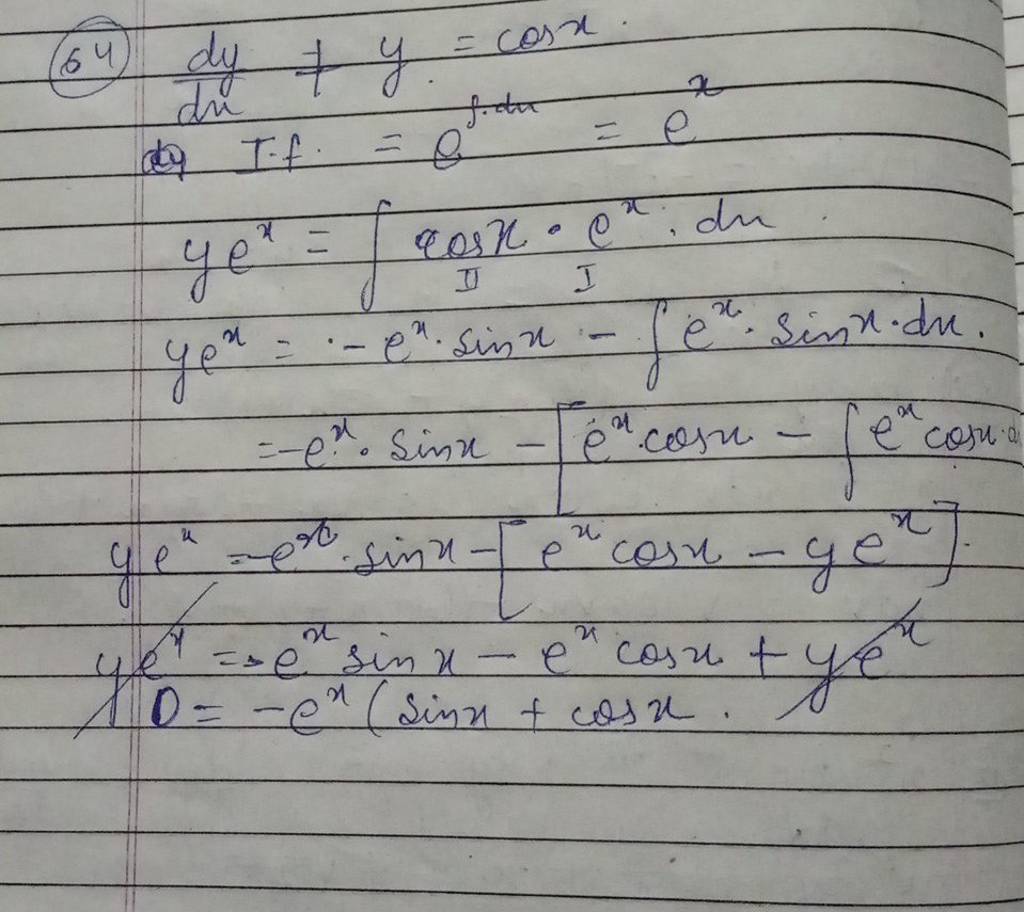 64 dy/dx + y = cosx.
I.f. = e^∫.dx = e^x
ye^x = ∫ cosx · e^x . dx .
II I
ye^x = . - e^x. sinx - ∫ e^x. sinx.dx.
= -e^x. sinx - [ e^x.cosx - ∫ e^x cosx.d
ye^x = -e^x. sinx - [ e^x cosx - ye^x ].
ye^x = -e^x sinx - e^x cosx + ye^x
0 = -e^x (sinx + cosx .